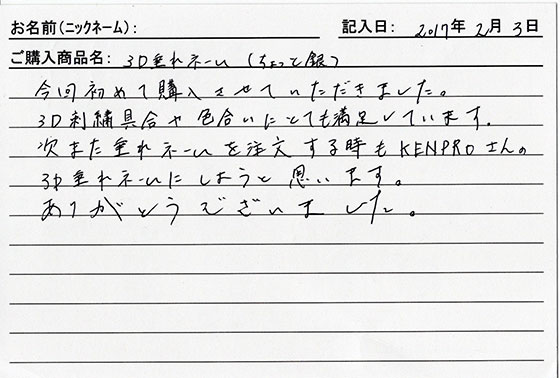 お名前(ニックネーム): 記入日: 2017年 2月 3日
ご購入商品名: 3D垂れネーム (ちょっと銀)
今回初めて購入させていただきました。
3D刺繍具合や色合いにとても満足しています。
次また垂れネームを注文する時もKENPROさんの
3D垂れネームにしようと思います。
ありがとうございました。